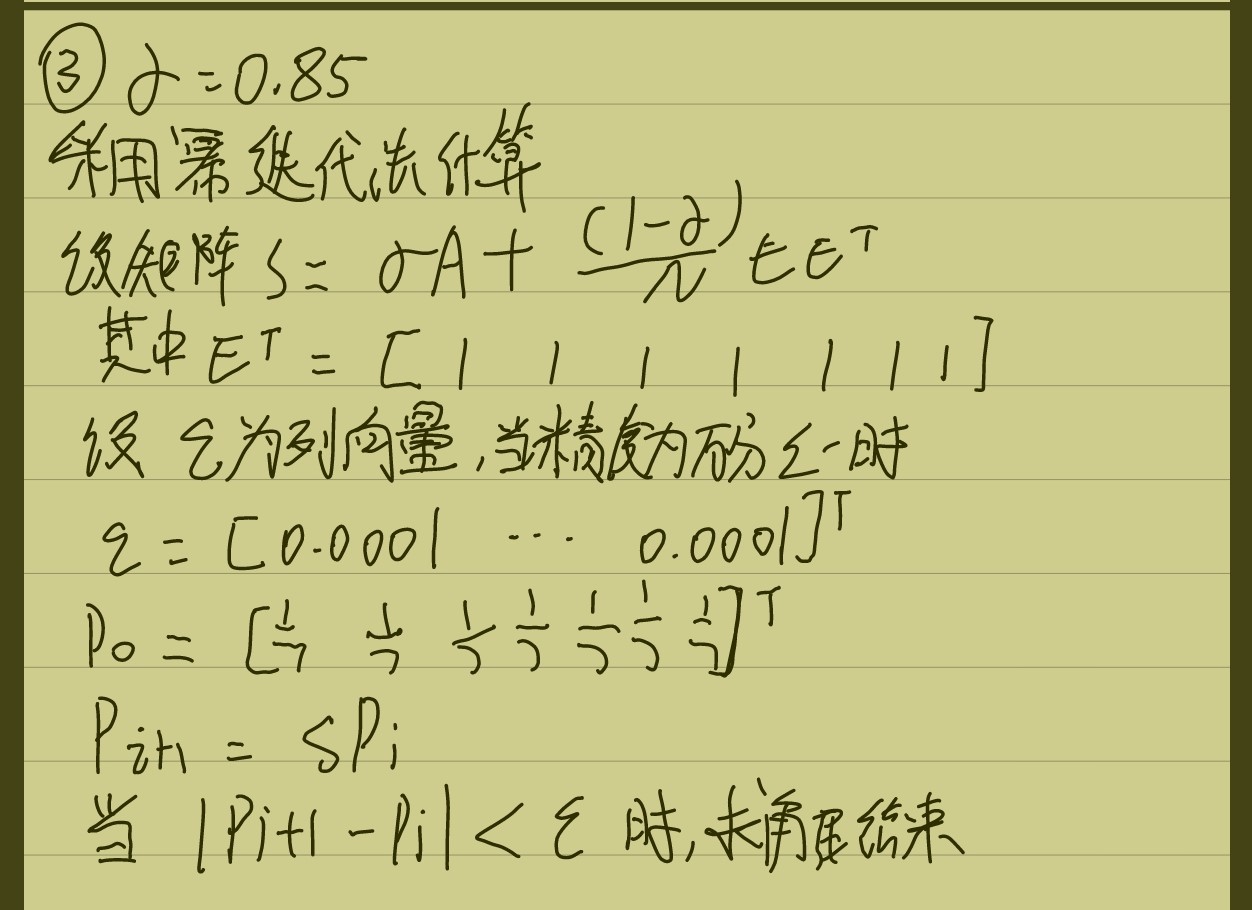 ③ α = 0.85
利用幂迭代法计算
设矩阵 S = αA + (1-α)/N EE^T
其中 E^T = [1 1 1 1 1 1 1]
设 ε为列向量,当精度为万分之一时
ε = [0.0001 ... 0.0001]^T
P0 = [1/7 1/7 1/7 1/7 1/7 1/7 1/7]^T
Pi+1 = SPi
当 |Pi+1 - Pi| < ε 时,求解结束